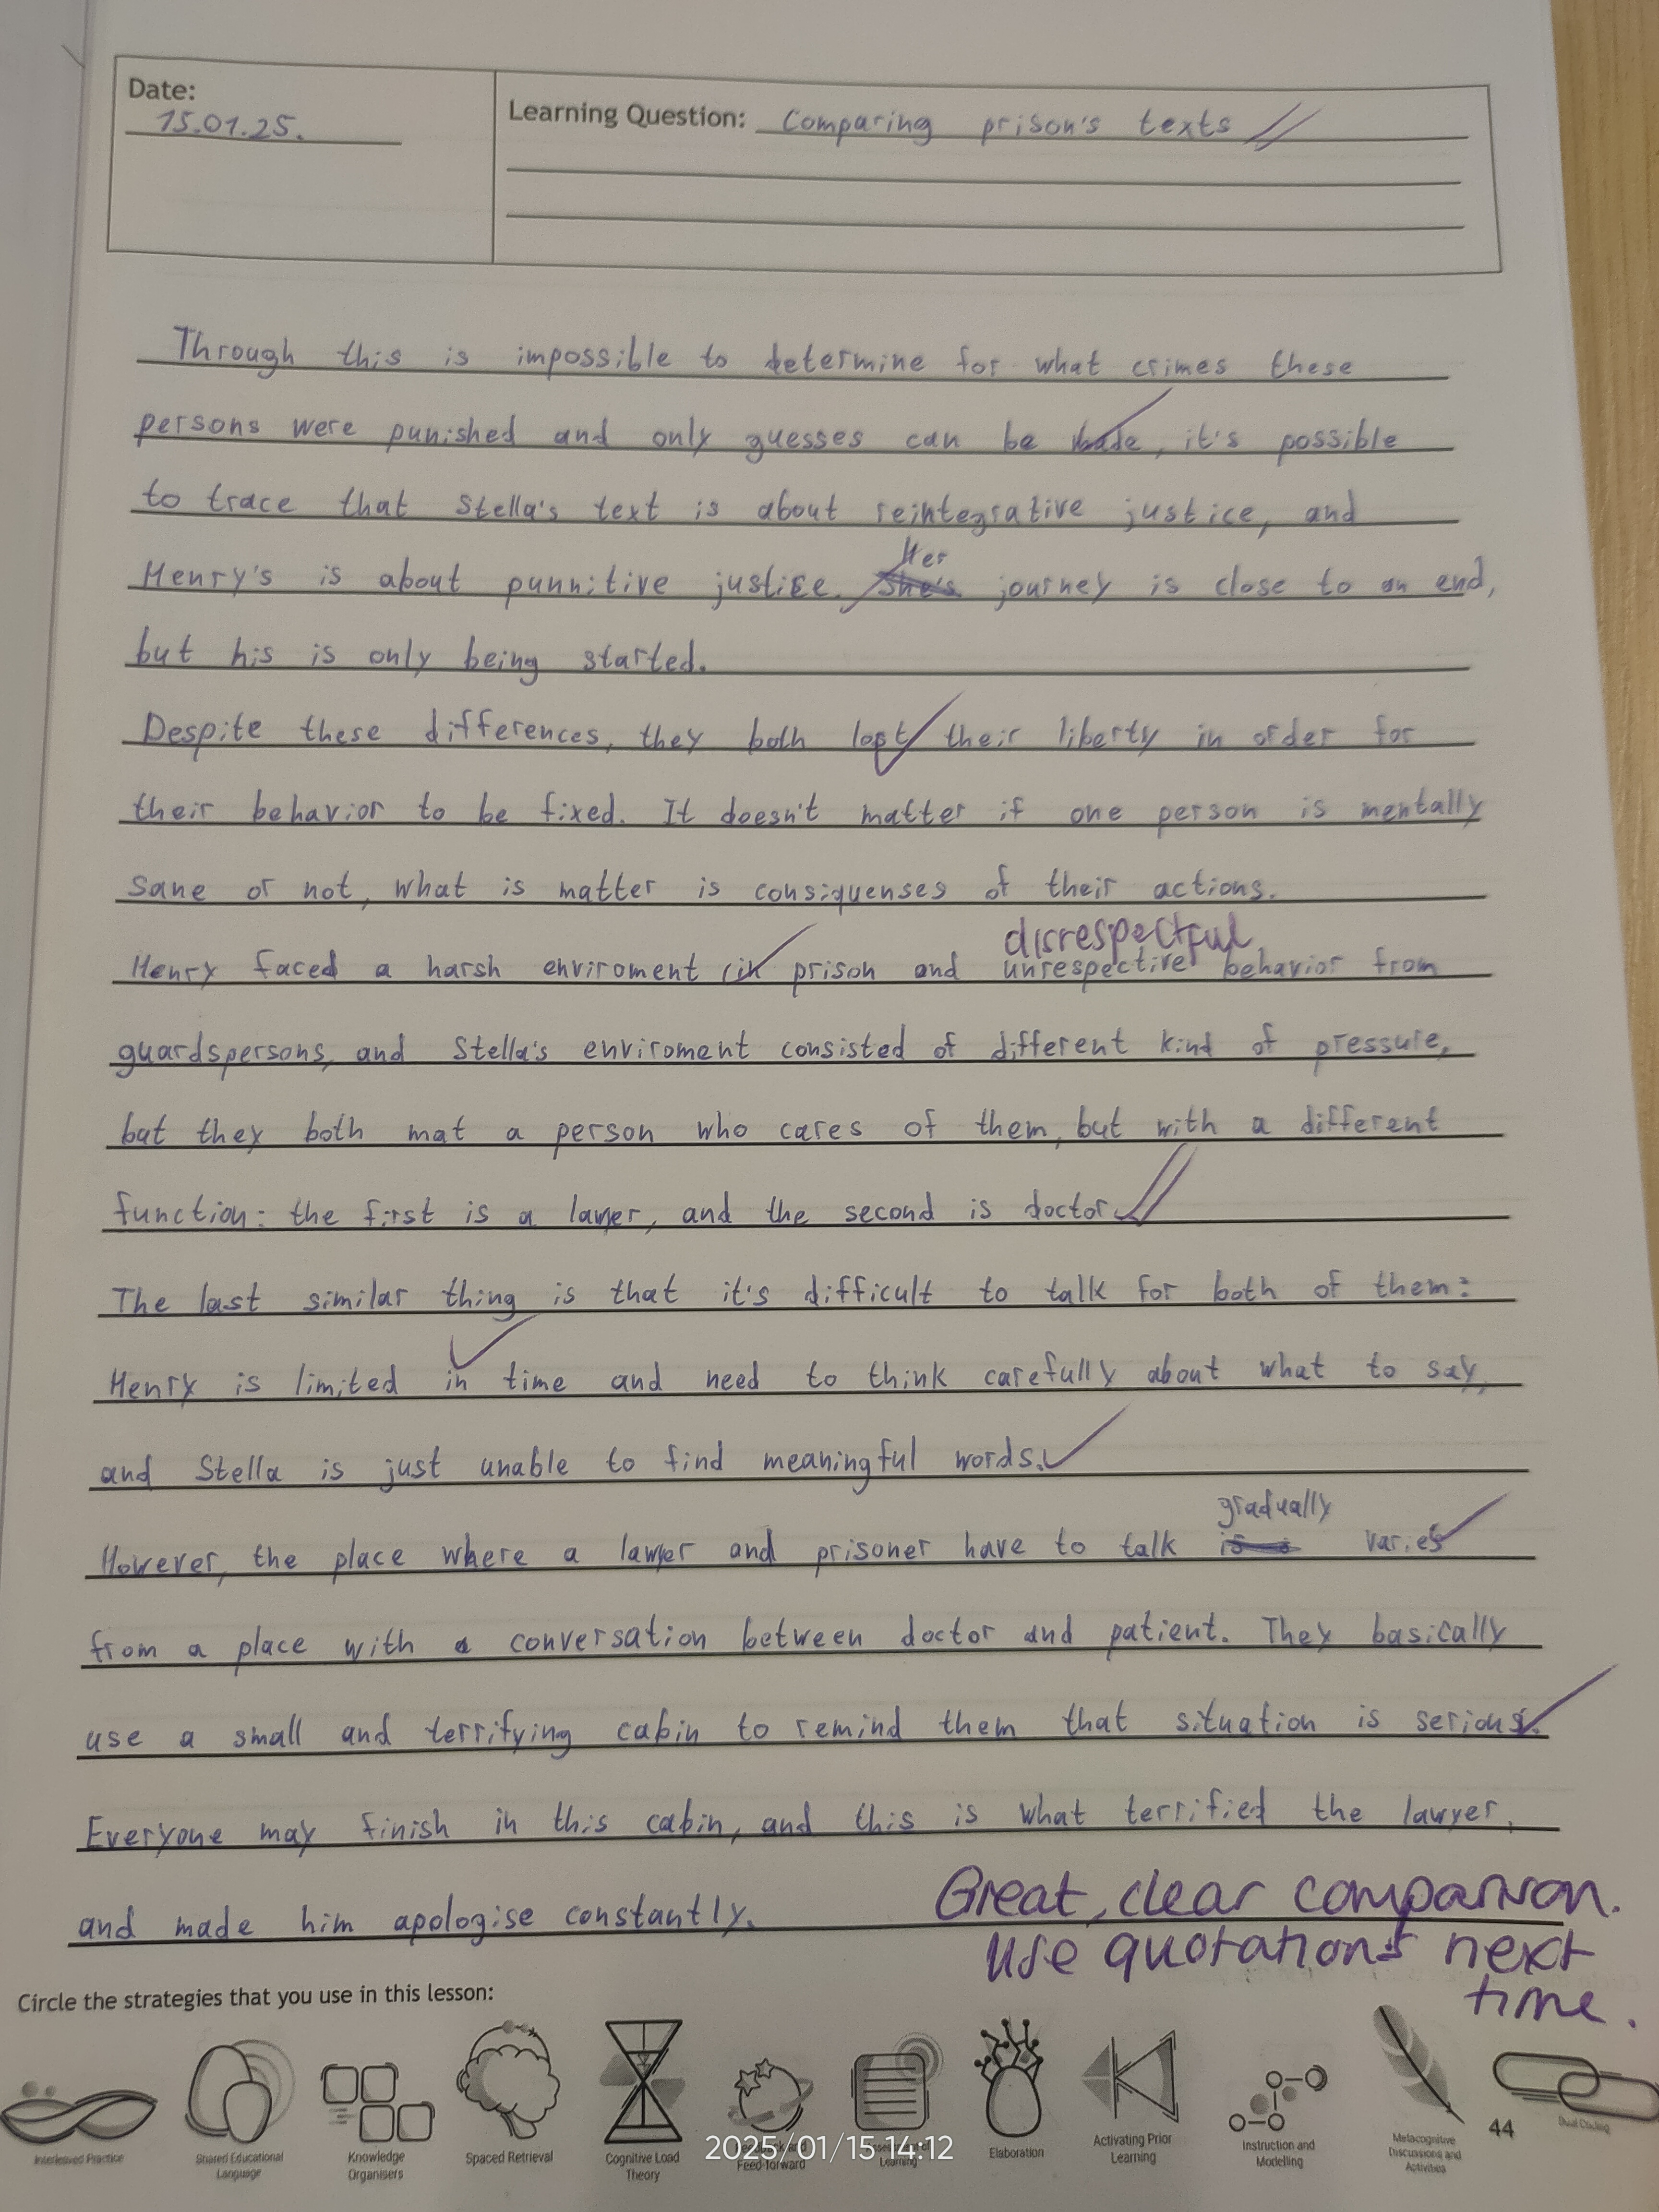 Date:
15.01.25.
Learning Question: Comparing prison's texts
Through this is impossible to determine for what crimes these
persons were punished and only guesses can be made, it's possible
to trace that Stella's text is about reintegrative justice, and
Henry's is about punnitive justice. Her journey is close to an end,
but his is only being started.
Despite these differences, they both lost their liberty in order for
their behavior to be fixed. It doesn't matter if one person is mentally
sane or not, what is matter is consiquenses of their actions.
disrespectful
Henry faced a harsh enviroment in prison and unrespective behavior from
guardspersons, and Stella's enviroment consisted of different kind of pressure,
but they both mat a person who cares of them, but with a different
function: the first is a lawyer, and the second is doctor.
The last similar thing is that it's difficult to talk for both of them:
Henry is limited in time and need to think carefully about what to say,
and Stella is just unable to find meaningful words.
However, the place where a lawyer and prisoner have to talk gradually varies
from a place with a conversation between doctor and patient. They basically
use a small and terrifying cabin to remind them that situation is serious.
Everyone may finish in this cabin, and this is what terrified the lawyer,
and made him apologise constantly.
Great, clear comparison.
Use quotations next
time.
Circle the strategies that you use in this lesson:
Interleaved Practice
Shared Educational
Language
Knowledge
Organisers
Spaced Retrieval
Cognitive Load
Theory
Feed-forward
Learning
Elaboration
Activating Prior
Learning
Instruction and
Modelling
Metacognitive
Discussions and
Activities
Dual Coding
44
2025/01/15 14:12